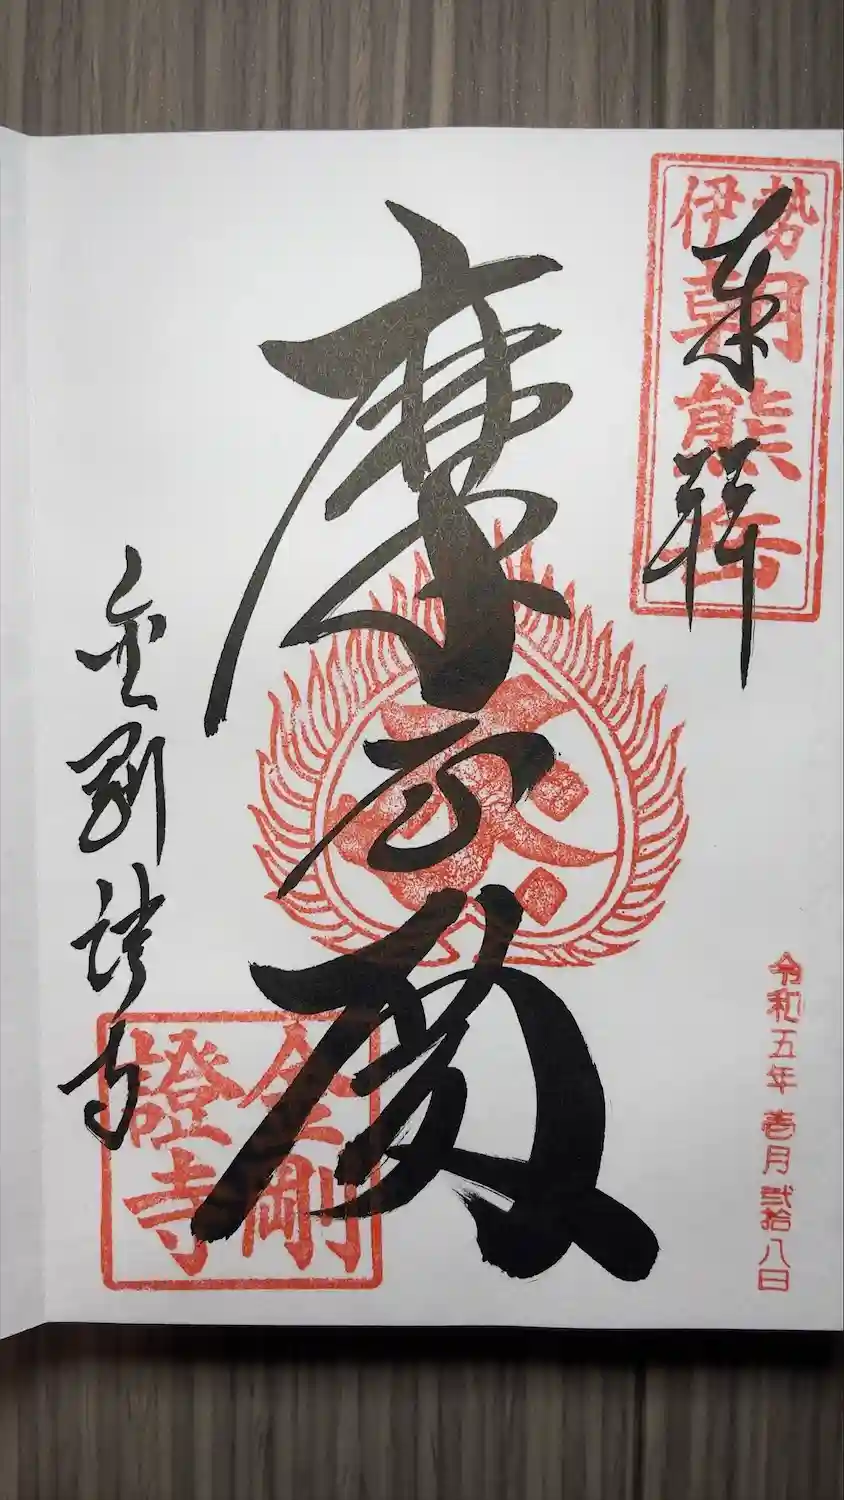 伊勢
朝熊岳
奉拝
令和五年 壱月 弐拾八日
摩尼殿
金剛證寺
金剛
證寺